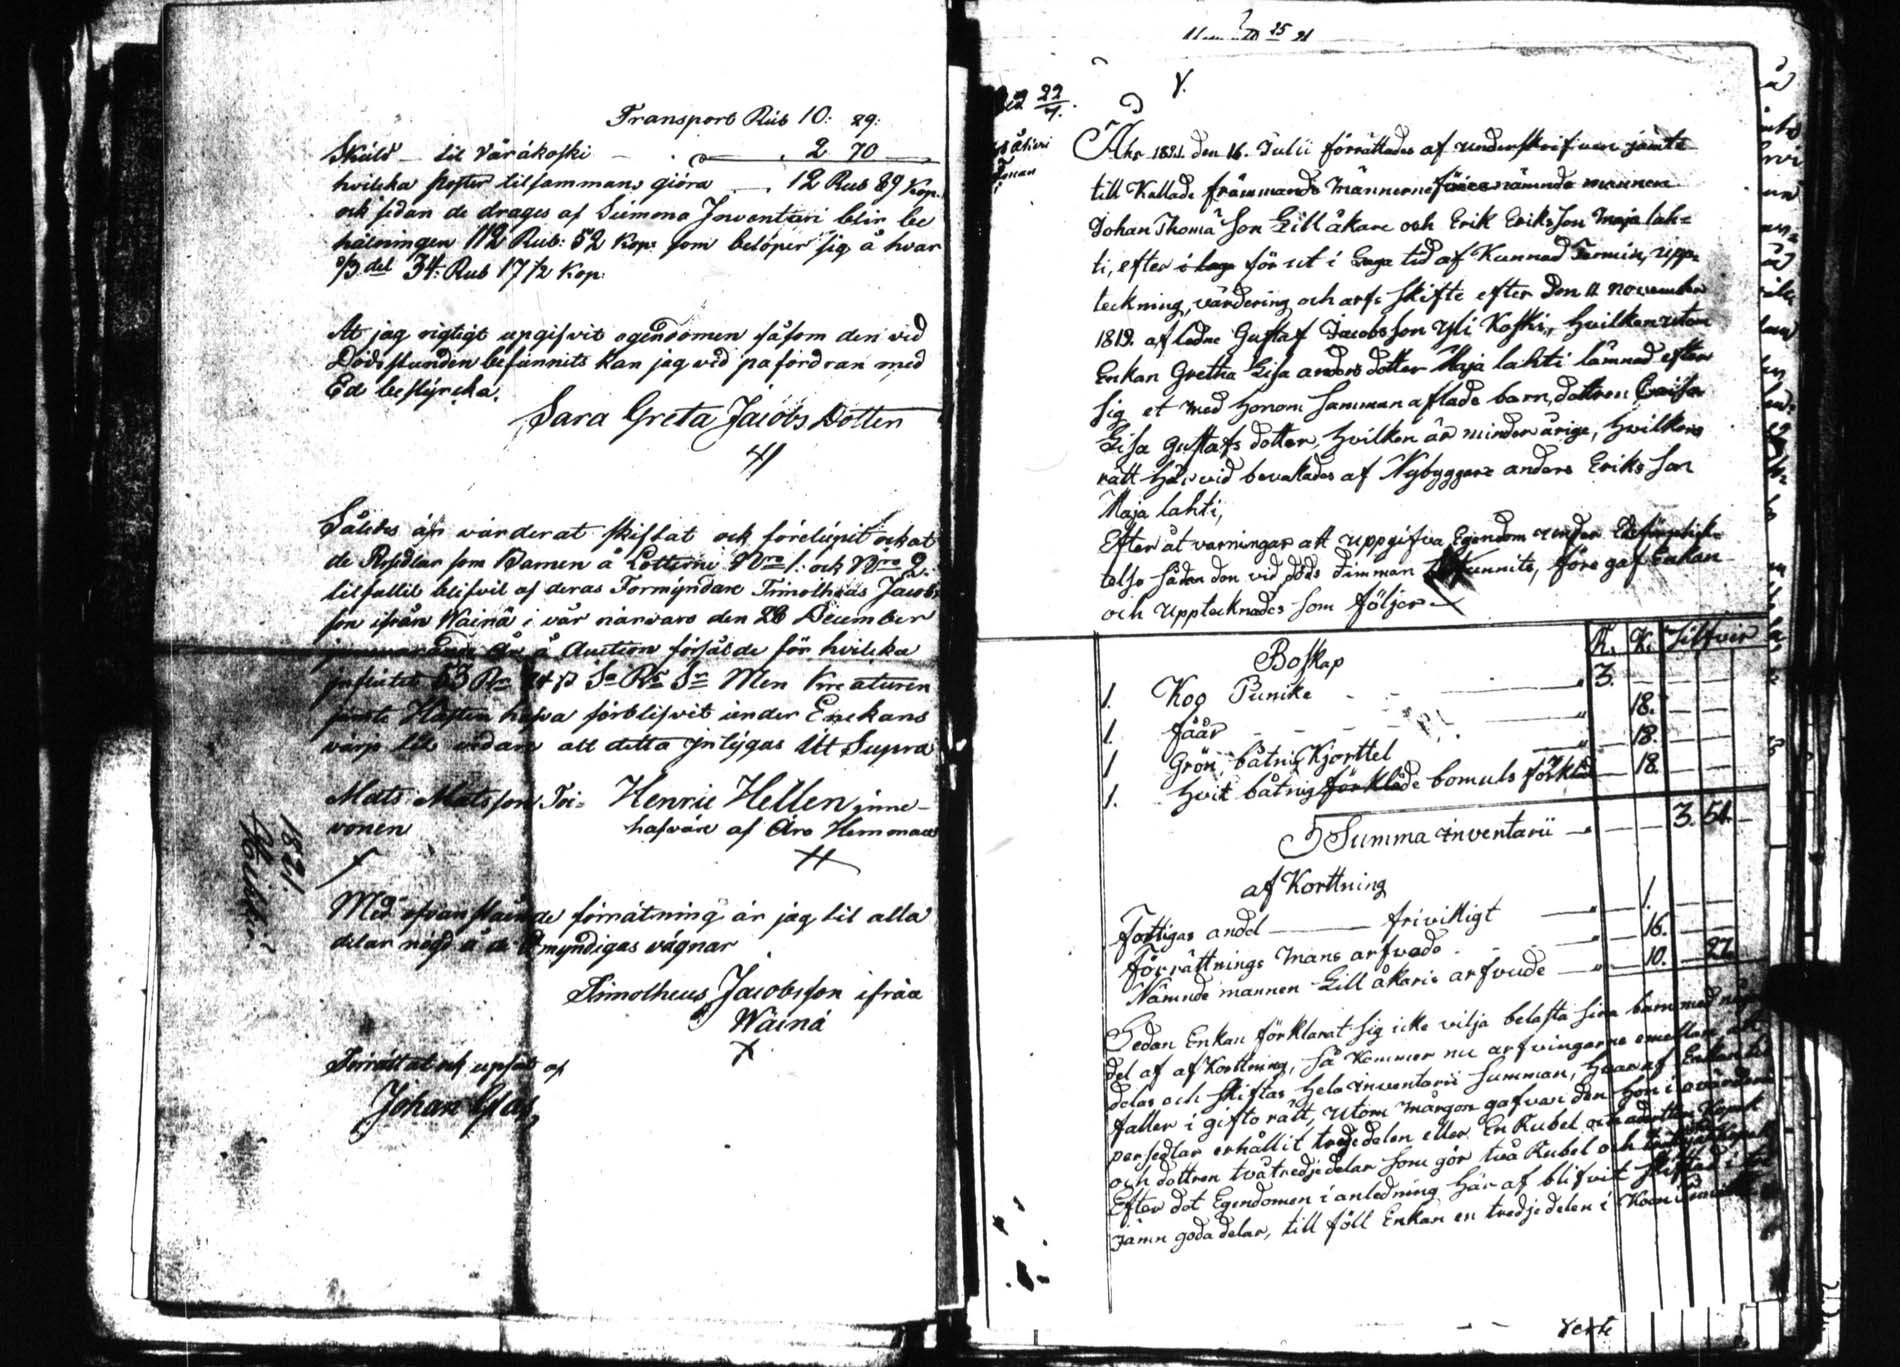 Transport Rub 10: 29:
Skuld til Varákoski 2 70
hvilcka poster tilsammans gióra 12 Rub 89 Kop.
ock sedan de drages af Summa Inventari blir be
hålningen 112 Rub: 52 Kop: som beloper sig å hvar
1/3 del 34: Rub 17 1/2 Kop:
At jag rigtigt upgifvit egendomen såsom den vid
Dödsstunden befunnits kan jag vid påfordran med
Ed bestyrcka.
Sara Greta Jacobs Dotter
Således är värderat skiftat ock förelupit ock at
de Persedlar som Barnen å Lotterne Nro 1. och Nro 2.
tilfallit blifvit af deras Formyndare Timotheus Jacobs
son ifrån Wäinä i vår närvaro den 28 December
å Auction försålde för hvilcka
influtit 53 Men Kreaturen
jämte Hästen hafva förblifvit under Enckans
vårjo til vidare alt detta intygas Ut Supra
Mats Matsson Toi=
vonen
Henric Hellen inne-
hafvare af Aro Hemman
Med ofvanstående förrätning är jag til alla
delar nögd å de Omyndigas vägnar
Timotheus Jacobsson ifrån
Wäinä
Förrättat och upsatt af
Johan
1821
22
7.
År 1821. den 16. Julii förrättades af underskrifven jämte
till Kallade främmande männerne nämnde mannen
Johan Thomä Son Lillåkare och Erik Eriks Son Maja lah=
ti, efter i laga för ut i Laga tid af Kunnad Termin, upp=
teckning, värdering och arfs skifte efter Den 11 November
1819. afledne Gustaf Jacobs Son Yli Koski, hvilken utom
Enkan Gretha Lisa anders dotter Maja lahti lämnad efter
sig et med honom samman aflade barn, dottren Caisa
Lisa Gustafs dotter, hvilken är minder årige, hvilkens
rätt här vid bevakades af Nybyggare anders Eriks Son
Maja lahti,
Efter åtvarningar att uppgifva Egendom under Edsförplick=
telse sådan den vid döds timman befunnits, före gaf Enkan
och upptecknades som följer
R. K. Silfver
Boskap
1. Koo Punike 3.
1. fåår 18.
1 Grön båtnig Kjorttel 18.
1. hvit båtnig förkläde bomuls förkläd 18.
Summa inventarii 3. 54.
af Korttning
Fattigas andel frivilligt 1.
förrättnings mans arfvode 16.
Nämnde mannen Lill åkaris arfvude 10. 27.
Sedan Enkan förklarat sig icke vilja belasta sina barn med någon
del af af Korttning, så Kommer nu arfvingarne emellan att
delas och skiftas hela inventarii summan, hvaraf Enkan till
faller i gifto rätt, utom mårgon gafvan den hon i ovärderade
persedlar erhållit tredjedelen eller En Rubel och aderton Kopek
och dottren två tredjedelar som gör två Rubel och
Efter det Egendomen i anledning här af blifvit skiftad i tre
jämn goda delar, till föll Enkan en tredjedelen i Koon Punike
Verte